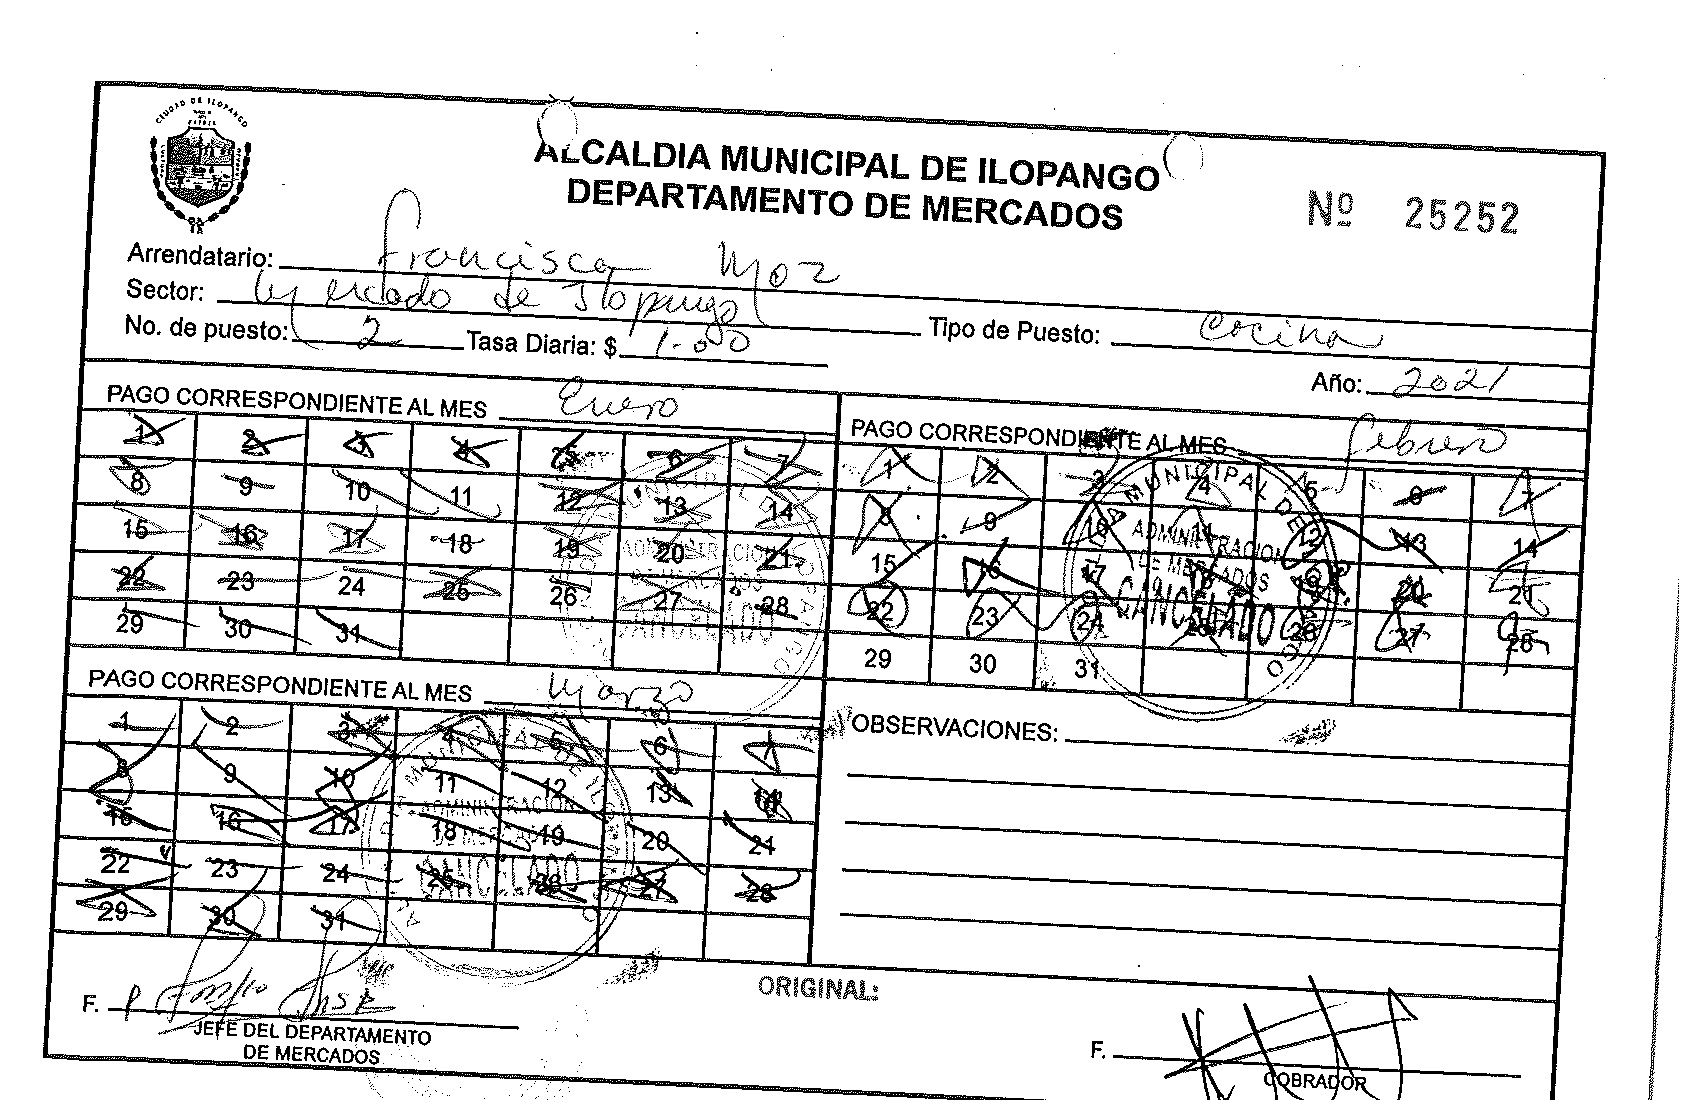 CIUDAD DE ILOPANGO
ALCALDIA MUNICIPAL DE ILOPANGO
DEPARTAMENTO DE MERCADOS
Nº 25252
Arrendatario: Francisca Moz
Sector: Mercado de Ilopango
No. de puesto: 2 Tasa Diaria: $ 1.00 Tipo de Puesto: Cocina
Año: 2021
PAGO CORRESPONDIENTE AL MES Enero
1 2 3 4 5 6 7
8 9 10 11 12 13 14
15 16 17 18 19 20 21
22 23 24 25 26 27 28
29 30 31
PAGO CORRESPONDIENTE AL MES febrero
1 2 3 4 5 6 7
8 9 10 11 12 13 14
15 16 17 18 19 20 21
22 23 24 25 26 27 28
29 30 31
ADMINISTRACION
DE MERCADOS
CANCELADO
PAGO CORRESPONDIENTE AL MES Marzo
1 2 3 4 5 6 7
8 9 10 11 12 13 14
15 16 17 18 19 20 21
22 23 24 25 26 27 28
29 30 31
ADMINISTRACION
DE MERCADOS
CANCELADO
OBSERVACIONES:
ORIGINAL:
F.
JEFE DEL DEPARTAMENTO
DE MERCADOS
F.
COBRADOR